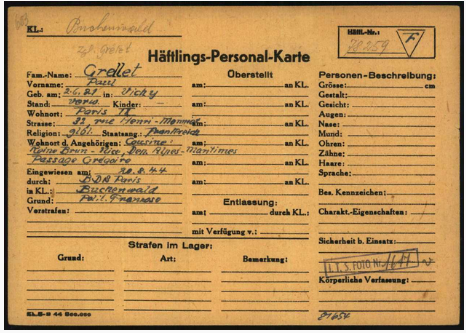 KL.: Buchenwald
Häftl.-Nr.:
78259
F
Häftlings-Personal-Karte
Fam.-Name: Grellet
Vorname: Paul
Geb. am: 2.6.21 in: Vichy
Stand: verh. Kinder:
Wohnort: Paris
Strasse: 33 rue Henri-
Religion: Staatsang.: Frankreich
Wohnort d. Angehörigen: Cousine:
Brun - Nice, Dep. Alpes-Maritimes
Passage Grégoire
Eingewiesen am: 20.8.44
durch: BDA Paris
in KL.: Buchenwald
Grund: Polit. Franzose
Vorstrafen:
Überstellt
am: an KL.
am: an KL.
am: an KL.
am: an KL.
am: an KL.
am: an KL.
Entlassung:
am: durch KL.:
mit Verfügung v.:
Personen-Beschreibung:
Grösse: cm
Gestalt:
Gesicht:
Augen:
Nase:
Mund:
Ohren:
Zähne:
Haare:
Sprache:
Bes. Kennzeichen:
Charakt.-Eigenschaften:
Sicherheit b. Einsatz:
I.T.S. FOTO Nr.
Körperliche Verfassung:
Strafen im Lager:
Grund: Art: Bemerkung: